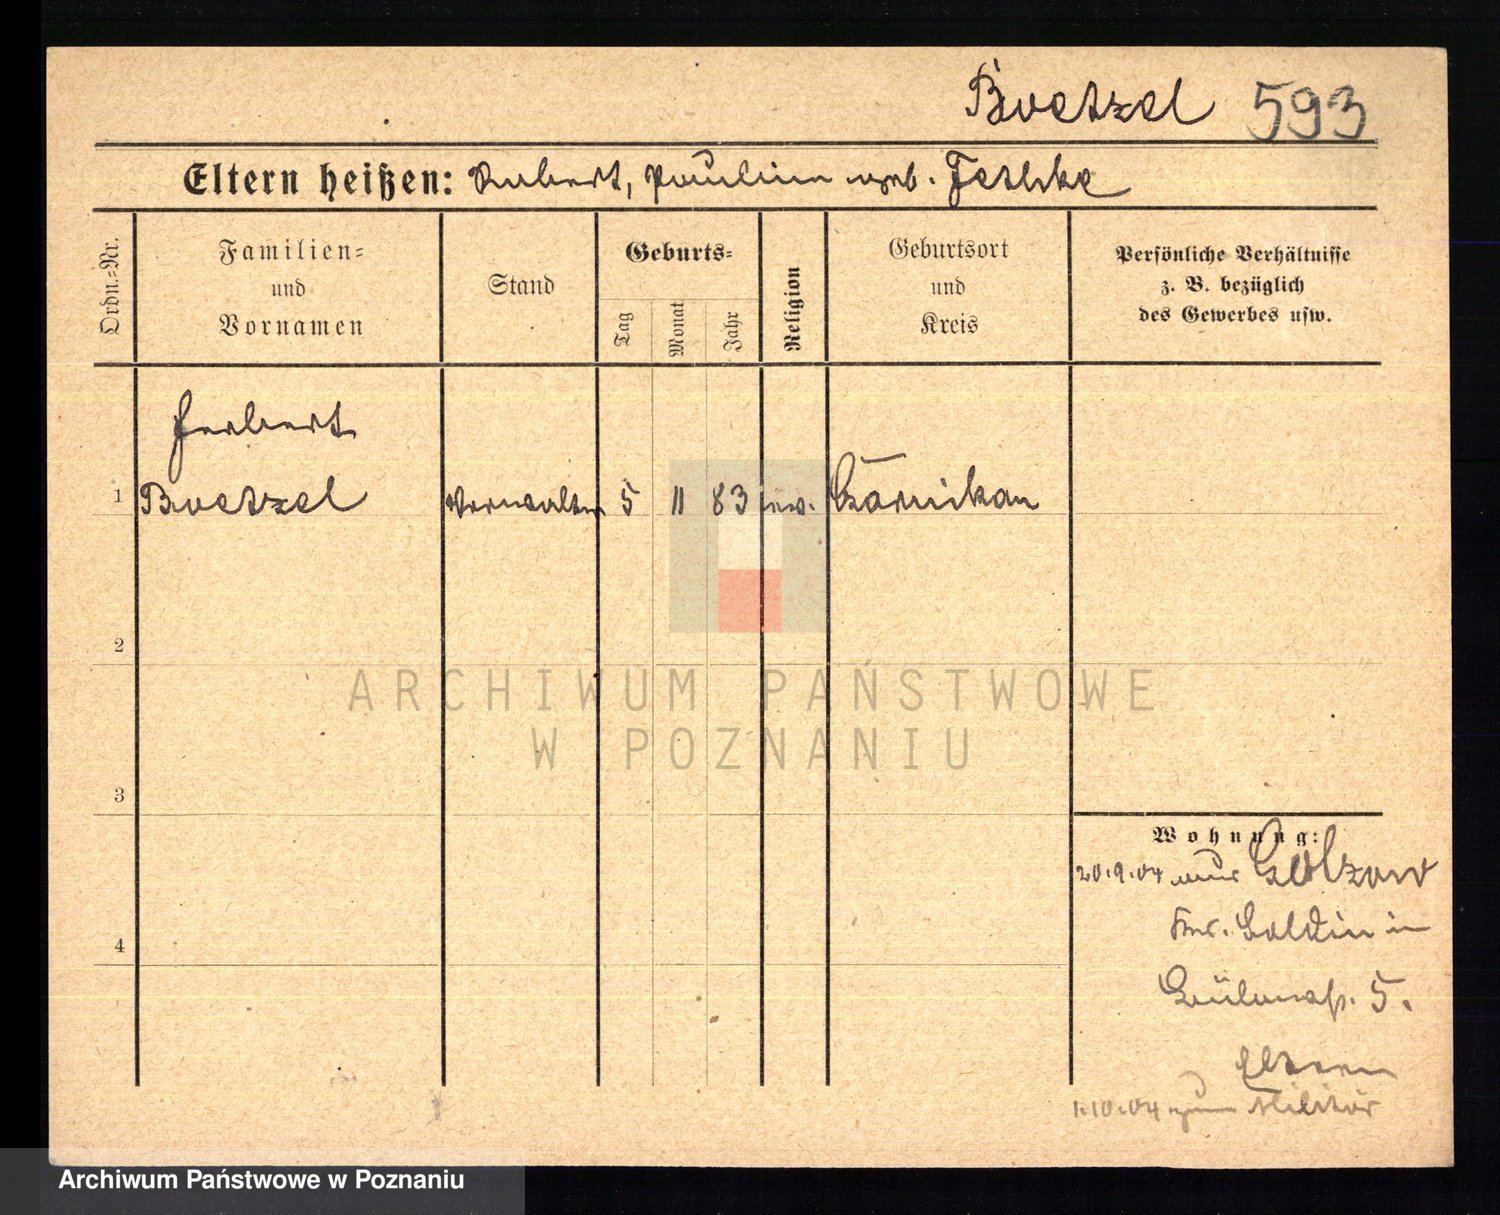 Boetzel 593
Eltern heißen: Robert, Pauline geb. Jeschke
Ordn.-Nr.
Familien-
und
Vornamen
Stand
Geburts-
Tag
Monat
Jahr
Religion
Geburtsort
und
Kreis
Persönliche Verhältnisse
z. B. bezüglich
des Gewerbes usw.
Herbert
1 Boetzel Verwalter 5 11 83 ev. Czarnikau
2
3
4
Wohnung:
20.9.04 aus Golzow
Kr. Soldin in
5.
Eltern
1.10.04 zum Militär
ARCHIWUM PAŃSTWOWE
W POZNANIU
Archiwum Państwowe w Poznaniu